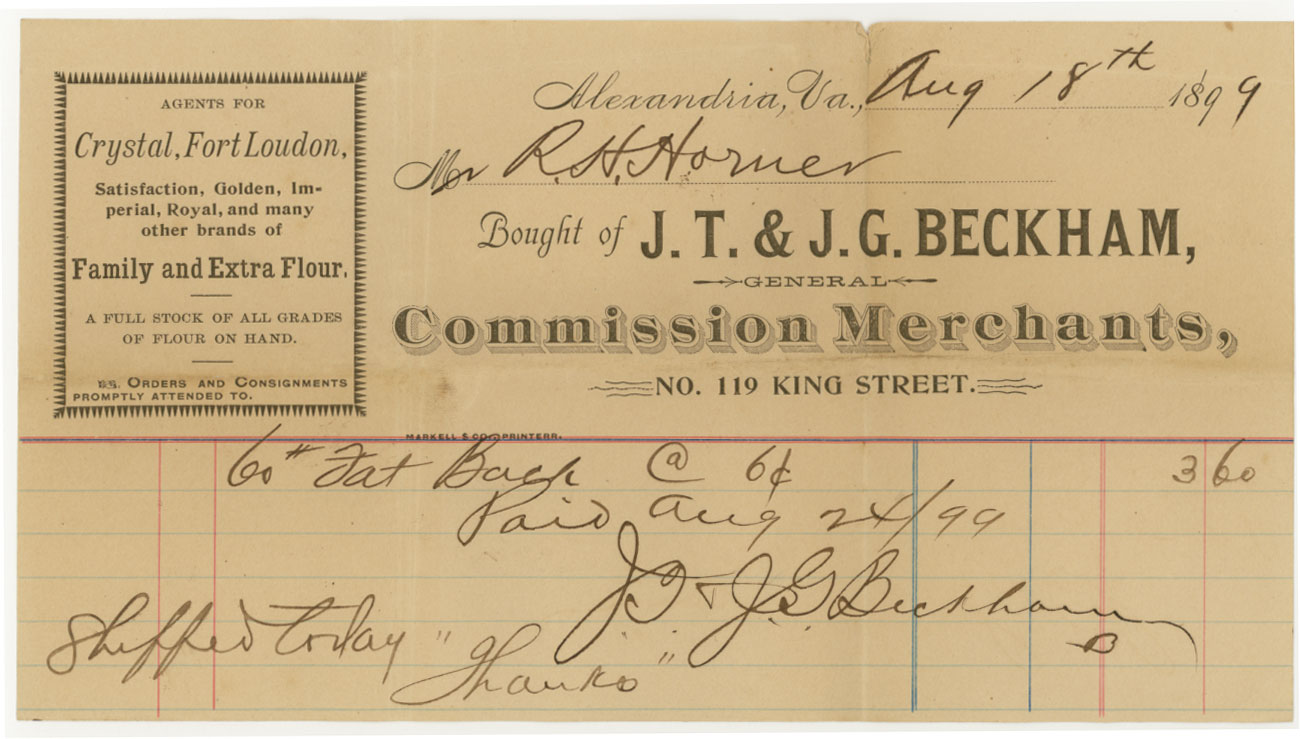 AGENTS FOR
Crystal, Fort Loudon,
Satisfaction, Golden, Im-
perial, Royal, and many
other brands of
Family and Extra Flour.
A FULL STOCK OF ALL GRADES
OF FLOUR ON HAND.
ORDERS AND CONSIGNMENTS
PROMPTLY ATTENDED TO.
Alexandria, Va., Aug 18th 1899
Mr R. H. Horner
Bought of J. T. & J. G. BECKHAM,
GENERAL
Commission Merchants,
NO. 119 KING STREET.
MARKELL & CO. PRINTERR.
60# Fat Back @ 6¢ 3 60
Paid Aug 24/99
J T & J. G Beckham
B
Shipped today "Thanks"